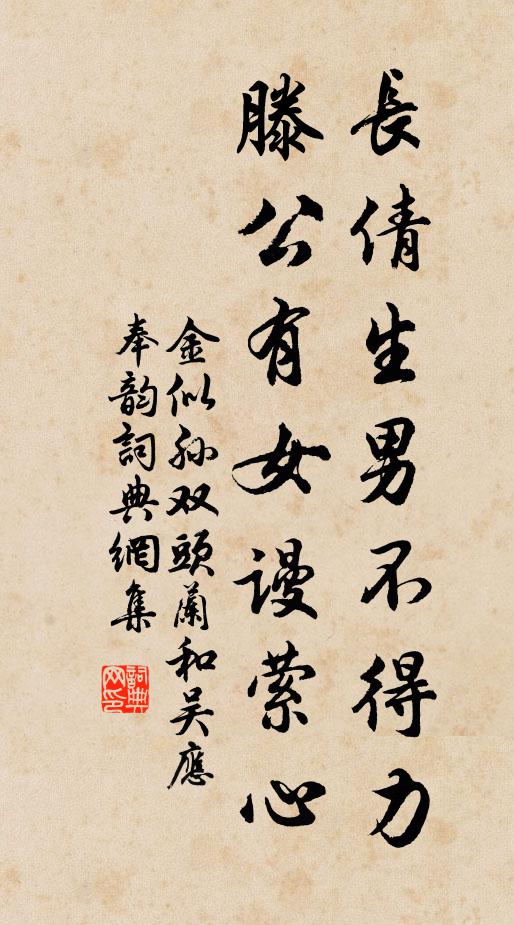 長倩生男不得力
滕公有女謾萦心
金似孙双頭蘭和吴應
奉韵詞典網集
詞典网印